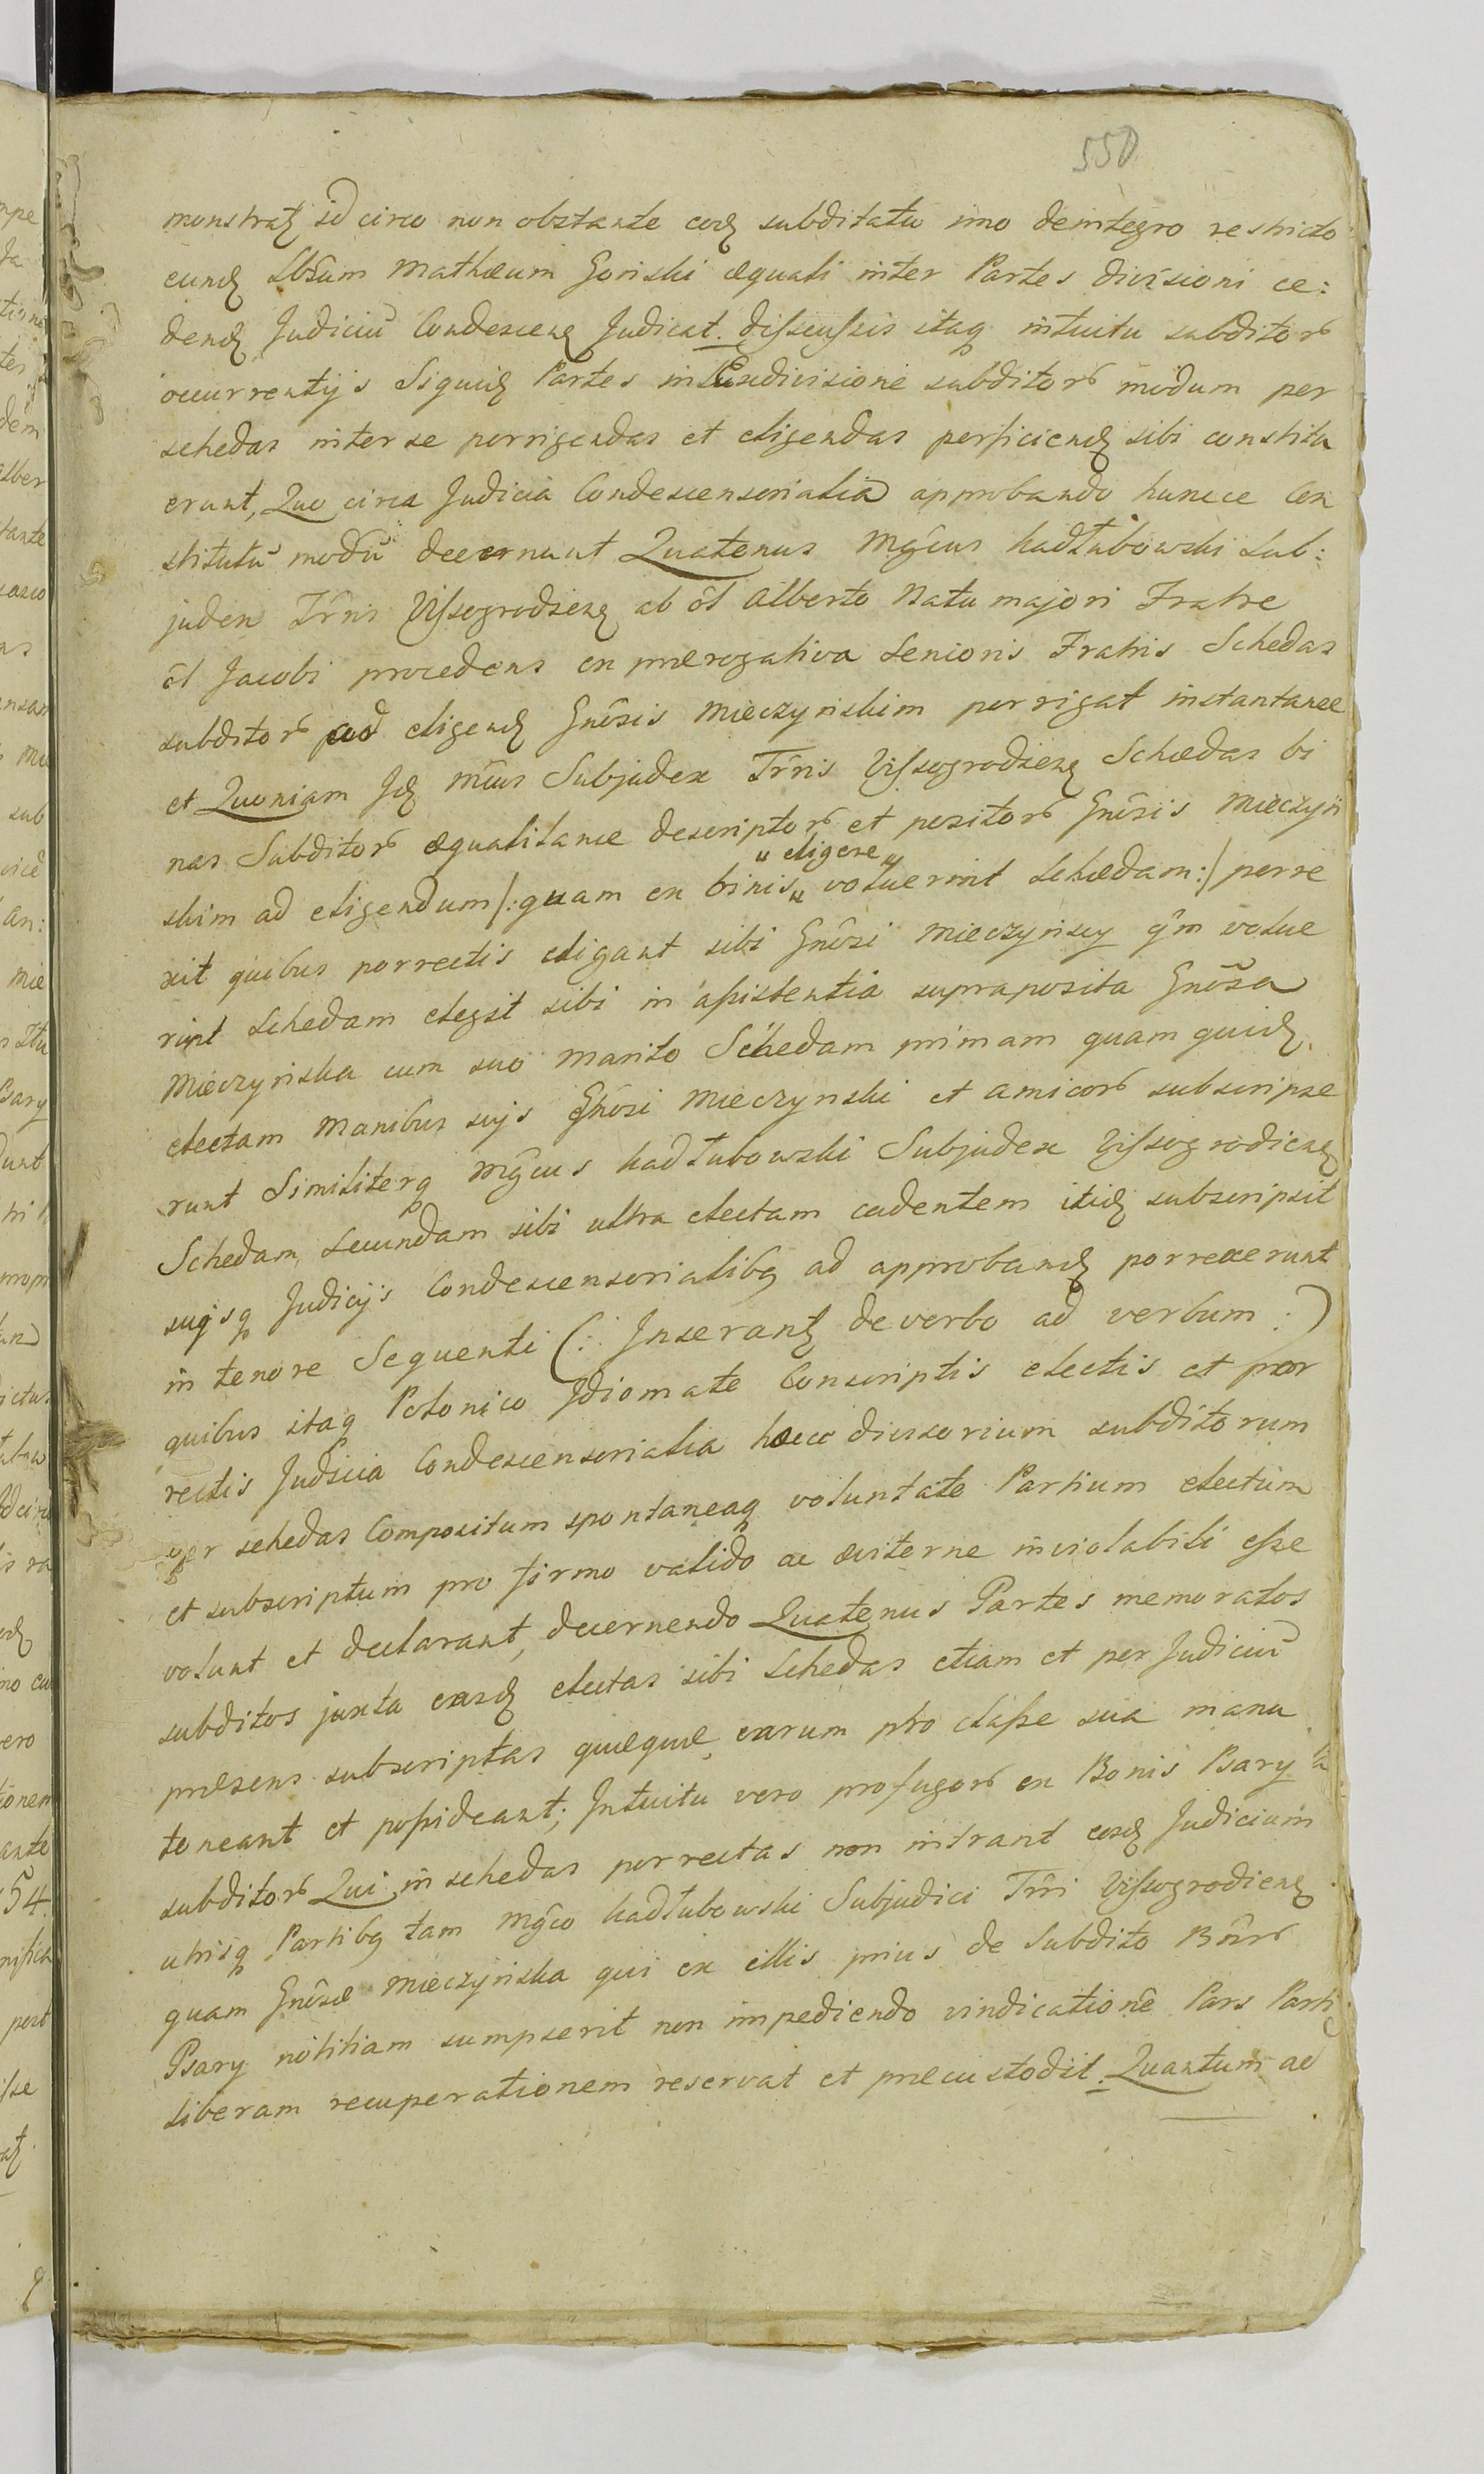 550
monstratꝫ id circo non obstante eodꝫ subditatu imo deintegro restricto
eundꝫ Lbrum Mathæum Goriski æquali inter Partes divisioni ce:
dendꝫ Judiciū Condescenꝫ Judicat. discussis itaq intuitu subditor
occurrentijs Siquidꝫ Partes in divisione subditor modum per
schedas inter se porrigendas et eligendas perficiendꝫ sibi constitu
erunt, Quo circa Judicia Condescensorialia approbando huncce Con
stitutū modū decernunt Quatenus Mgcus Kadłubowski Sub:
judex Trris Vissogrodzenꝫ ab ol Alberto Natu majori Fratre
ol Jacobi procedens ex prærogativa Senioris Fratris Schedas
subditor ad eligendꝫ Gnosis Mieczynskim porrigat instantanee
et Quoniam Jdꝫ Mcus Subjudex Trris Vissogrodzenꝫ Schedas bi
nas Subditor æqualitance descriptor et positor Gnosis Mieczyń
skim ad eligendum /: quam ex binis „ eligere „ voluerint Schedam :/ porre
xit quibus porrectis eligant sibi Gnosi Mieczynscy qm volue
rint Schedam elegit sibi in assistentia supraposita Gnosa
Mieczyńska cum suo marito Schedam primam quam quidꝫ
electam manibus suis Gnosi Mieczynski et amicor subscripse
runt Similiterq Mgcus Kadłubowski Subjudex Vissogrodienꝫ
Schedam secundam sibi ultra electam cadentem itidꝫ subscripsit
suijsq Judicijs Condescensorialibꝫ ad approbandꝫ porrexerunt
in tenore Sequenti (: Inserantꝫ de verbo ad verbum :)
quibus itaq Polonico Idiomate Conscriptis electis et por
rectis Judicia Condescensorialia hocce divisorium subditorum
per schedas Compositum spontaneaq voluntate Partium electum
et subscriptum pro firmo valido ac æviterne inviolabili esse
volunt et declarant, decernendo Quatenus Partes memoratos
subditos juxta easdꝫ electas sibi Schedas etiam et per Judiciū
præsens subscriptas quæquæ earum pro classe sua manu
teneant et possideant; Intuitu vero profugor ex Bonis Psary
subditor Qui in schedas porrectas non intrant eosdꝫ Judicium
utrisq Partibꝫ tam Mgco Kadłubowski Subjudici Trri Vissogrodienꝫ
quam Gnosæ Mieczyńska qui ex illis prius de Subdito Bnor
Psary notitiam sumpserit non impediendo vindicationē Pars Parti
liberam recuperationem reservat et præcustodit. Quantum ad